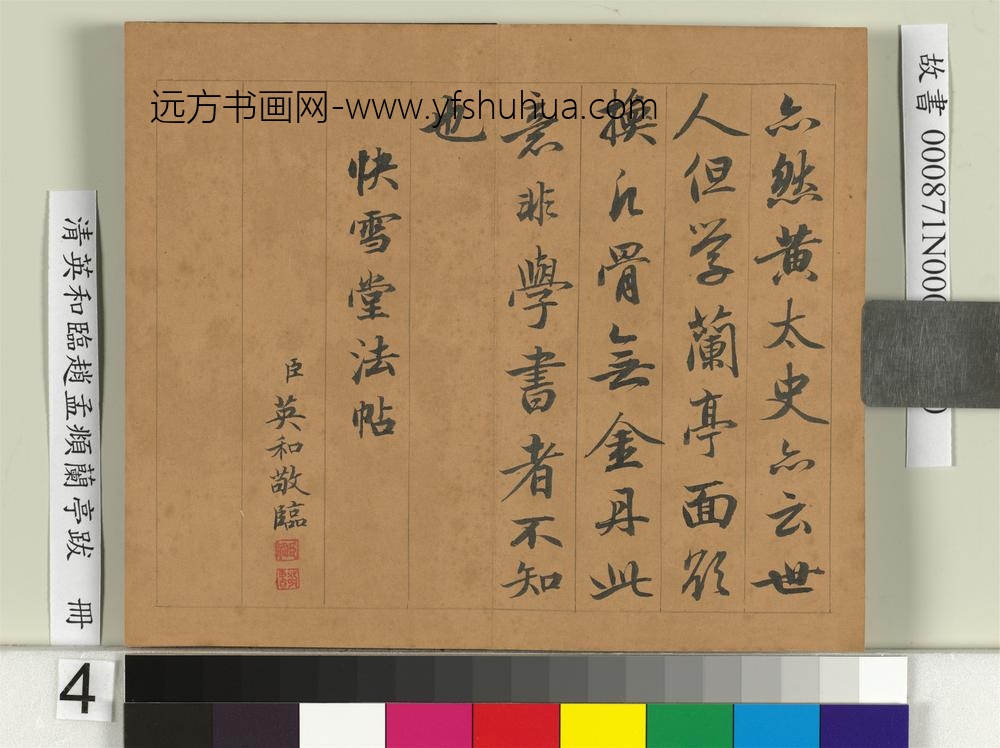 亦然黄太史亦云世
人但学蘭亭面欲
換凡骨無金丹此
意非學書者不知
也
快雪堂法帖
臣英和敬臨
远方书画网-www.yfshuhua.com
故書 000871N000
清英和臨趙孟頫蘭亭跋 冊
4